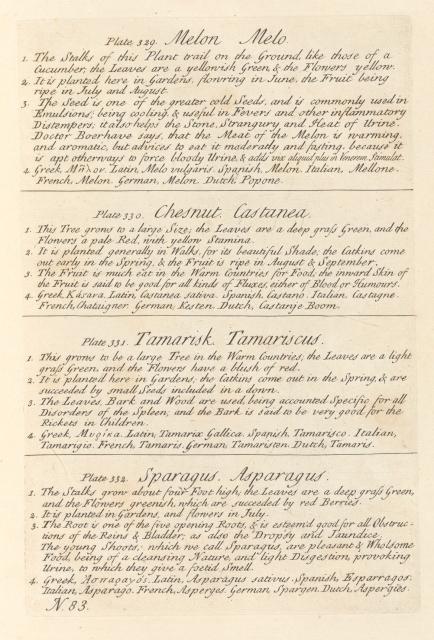 Plate 329. Melon Melo.
1. The Stalks of this Plant trail on the Ground, like those of a
Cucumber; the Leaves are a yellowish Green, & the Flowers yellow.
2. It is planted here in Gardens, flowring in June, the Fruit being
ripe in July and August.
3. The Seed is one of the greater cold Seeds, and is commonly used in
Emulsions, being cooling, & useful in Fevers and other inflammatory
Distempers, it also helps the Stone, Strangury and Heat of Urine.
Doctor Boerhave says, that the Meat of the Melon is warming,
and aromatic, but advices to eat it moderatly and fasting, because it
is apt otherways to force bloody Urine, & adds vix aliquid plus in Venerem Stimulat.
4. Greek, Latin, Melo vulgaris. Spanish, Melon. Italian, Mellone.
French, Melon. German, Melon. Dutch, Popone.
Plate 330. Chesnut. Castanea.
1. This Tree grows to a large Size; the Leaves are a deep grass Green, and the
Flowers a pale Red, with yellow Stamina.
2. It is planted generally in Walks, for its beautiful Shade; the Catkins come
out early in the Spring, & the Fruit is ripe in August & September.
3. The Fruit is much eat in the Warm Countries for Food; the inward Skin of
the Fruit is said to be good for all kinds of Fluxes, either of Blood or Humours.
4. Greek, Κάσανα. Latin, Castanea sativa. Spanish, Castano. Italian, Castagne.
French, Chataigner. German, Kesten. Dutch, Castanje Boom.
Plate 331. Tamarisk. Tamariscus.
1. This grows to be a large Tree in the Warm Countries; the Leaves are a light
grass Green, and the Flowers have a blush of red.
2. It is planted here in Gardens, the Catkins come out in the Spring, & are
succeeded by small Seeds included in a down.
3. The Leaves, Bark and Wood are used, being accounted Specific for all
Disorders of the Spleen; and the Bark is said to be very good for the
Rickets in Children.
4. Greek, Μυρίκα. Latin, Tamarix Gallica. Spanish, Tamarisco. Italian,
Tamarigio. French, Tamaris. German, Tamaristen. Dutch, Tamaris.
Plate 332. Sparagus. Asparagus.
1. The Stalks grow about four Foot high; the Leaves are a deep grass Green,
and the Flowers greenish, which are succeeded by red Berries.
2. It is planted in Gardens, and flowers in July.
3. The Root is one of the five opening Roots, & is esteem'd good for all Obstruc-
tions of the Reins & Bladder; as also the Dropsy and Jaundice.
The young Shoots, which we call Sparagus, are pleasant & Wholsome
Food, being of a cleansing Nature, and light Disgestion, provoking
Urine, to which they give a foetid Smell.
4. Greek, Ασπαραγος. Latin, Asparagus sativus. Spanish, Esparragos.
Italian, Asparago. French, Asperges. German, Spargen. Dutch, Aspergies.
N 83.